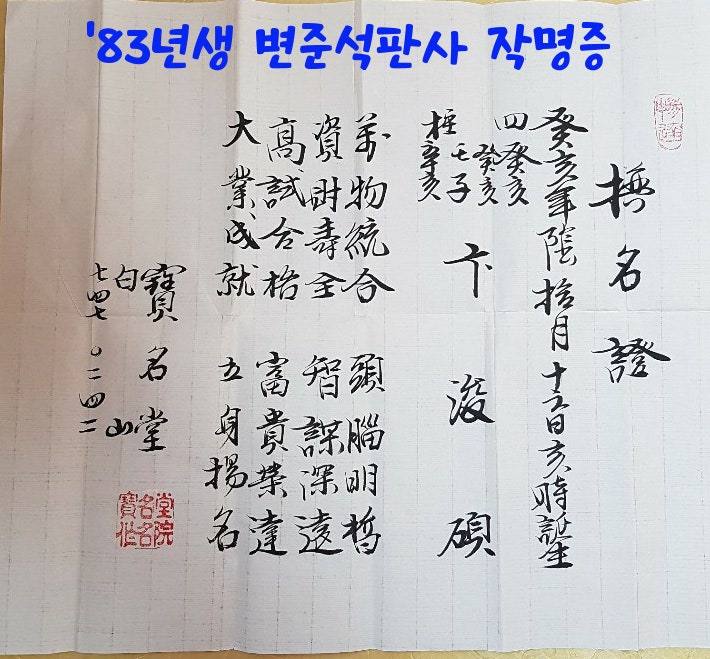 '83년생 변준석판사 작명증
撰名證
癸亥年陰拾月十五日亥時誕生
四癸亥
癸亥
壬子
柱辛亥
卞浚碩
萬物統合 頭腦明晳
資財壽全 智謀深遠
高試合格 富貴榮達
大業成就 立身揚名
寶名堂
白山
七四七 〇二四二
寶名堂
作名院